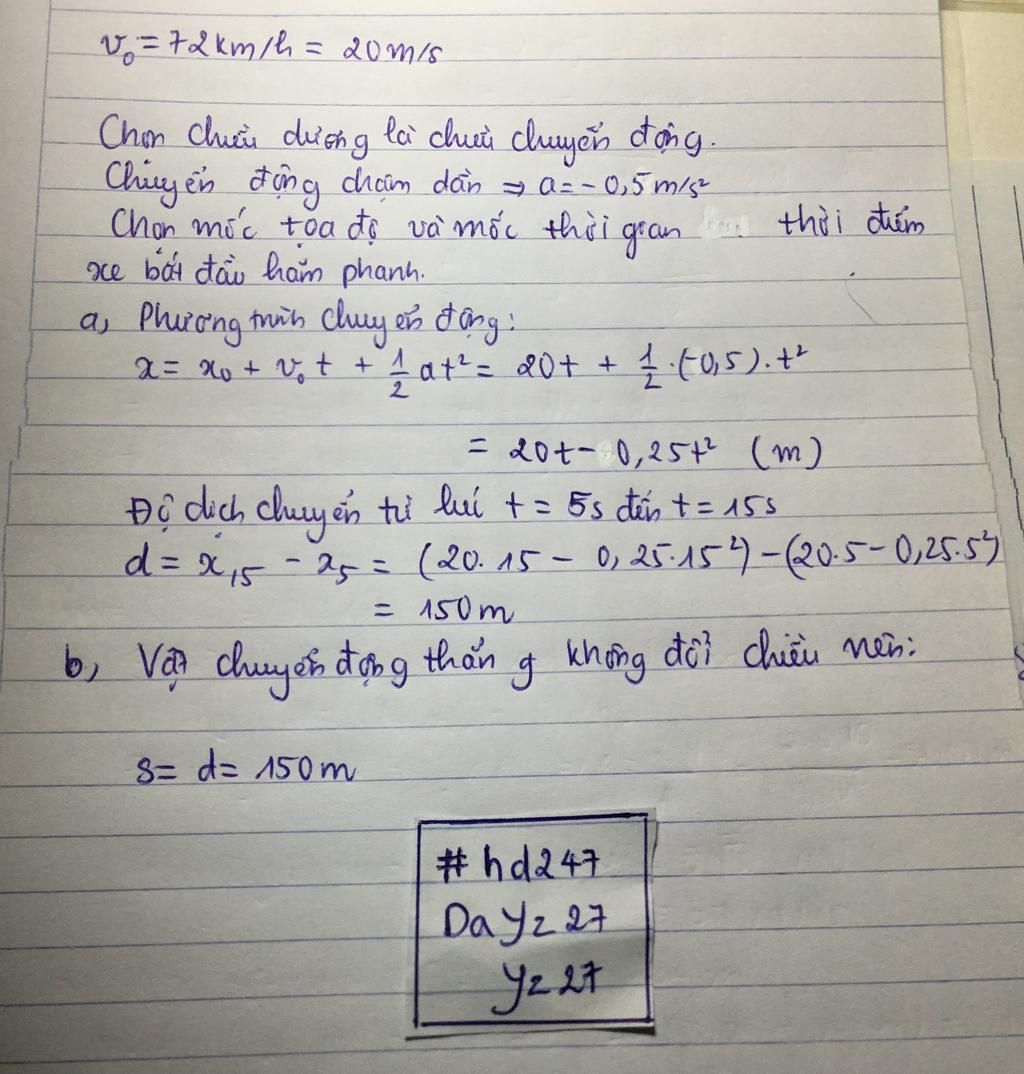 v₀ = 72km/h = 20m/s
Chọn chiều dương là chiều chuyển động.
Chuyển động chậm dần ⇒ a = -0,5m/s²
Chọn mốc tọa độ và mốc thời gian thời điểm
xe bắt đầu hãm phanh.
a, Phương trình chuyển động:
x = x₀ + v₀t + 1/2 at² = 20t + 1/2 .(-0,5).t²
= 20t - 0,25t² (m)
Độ dịch chuyển từ lúc t = 5s đến t = 15s
d = x₁₅ - x₅ = (20.15 - 0,25.15²) - (20.5 - 0,25.5²)
= 150m
b, Vật chuyển động thẳng không đổi chiều nên:
s = d = 150m
#hd247
Dayz27
yz27